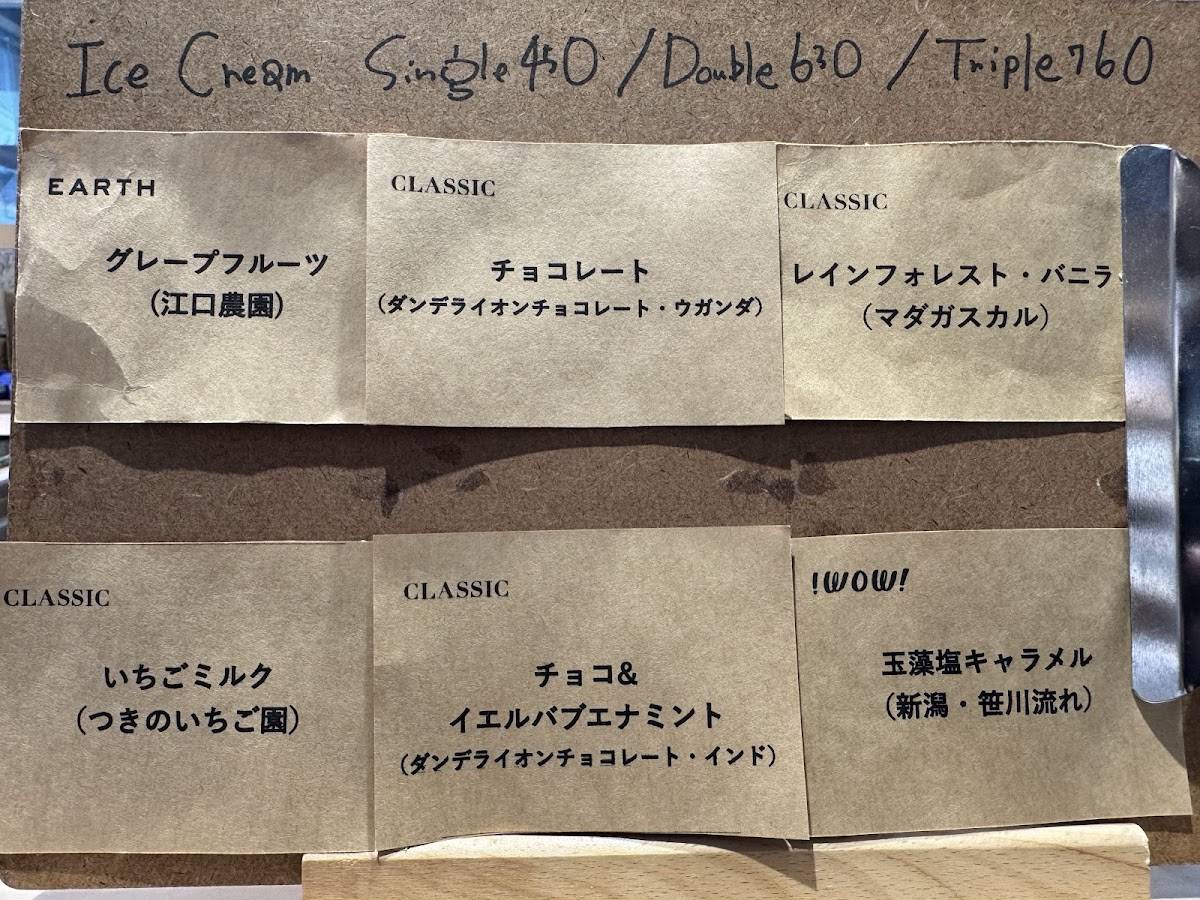 Ice Cream Single 450 / Double 630 / Triple 760
EARTH
グレープフルーツ
(江口農園)
CLASSIC
チョコレート
(ダンデライオンチョコレート・ウガンダ)
CLASSIC
レインフォレスト・バニラ
(マダガスカル)
CLASSIC
いちごミルク
(つきのいちご園)
CLASSIC
チョコ&
イエルバブエナミント
(ダンデライオンチョコレート・インド)
!WOW!
玉藻塩キャラメル
(新潟・笹川流れ)